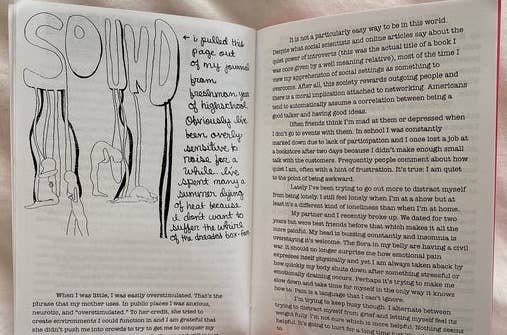 SOUND
← i pulled this
page out
of my journal
from
freshman year
of highschool
Obviously i've
been overly
sensitive to
noise for a
while. i've
spent many a
summer dying
of heat because
i don't want to
suffer the whirle
of the dreaded box-fan
When I was little, I was easily overstimulated. That's the
phrase that my mother uses. In public places I was anxious,
neurotic, and "overstimulated." To her credit, she tried to
create environments I could function in and I am grateful that
she didn't push me into crowds to try to get me to conquer my
It is not a particularly easy way to be in this world.
Despite what social scientists and online articles say about the
quiet power of introverts (this was the actual title of a book I
was once given by a well meaning relative), most of the time I
view my apprehension of social settings as something to
overcome. After all, this society rewards outgoing people and
there is a moral implication attached to networking. Americans
tend to automatically assume a correlation between being a
good talker and having good ideas.
Often friends think I'm mad at them or depressed when
I don't go to events with them. In school I was constantly
marked down due to lack of participation and I once lost a job at
a bookstore after two days because I didn't make enough small
talk with the customers. Frequently people comment about how
quiet I am, often with a hint of frustration. It's true: I am quiet
to the point of being awkward.
Lately I've been trying to go out more to distract myself
from being lonely. I still feel lonely when I'm at a show but at
least it's a different kind of loneliness than when I'm at home.
My partner and I recently broke up. We dated for two
years but were best friends before that which makes it all the
more painful. My head is buzzing constantly and insomnia is
overstaying it's welcome. The flora in my belly are having a civil
war. It should no longer surprise me how emotional pain
expresses itself physically and yet I am always taken aback by
how quickly my body shuts down after something stressful or
emotionally draining occurs. Perhaps it's trying to make me
slow down and take time for myself in the only way it knows
how to. Pain is a language that I can't ignore.
I'm trying to keep busy though. I alternate between
trying to distract myself from grief and letting myself feel its
weight fully. I'm not sure which is more helpful. Nothing seems
helpful. It's going to hurt for a long time